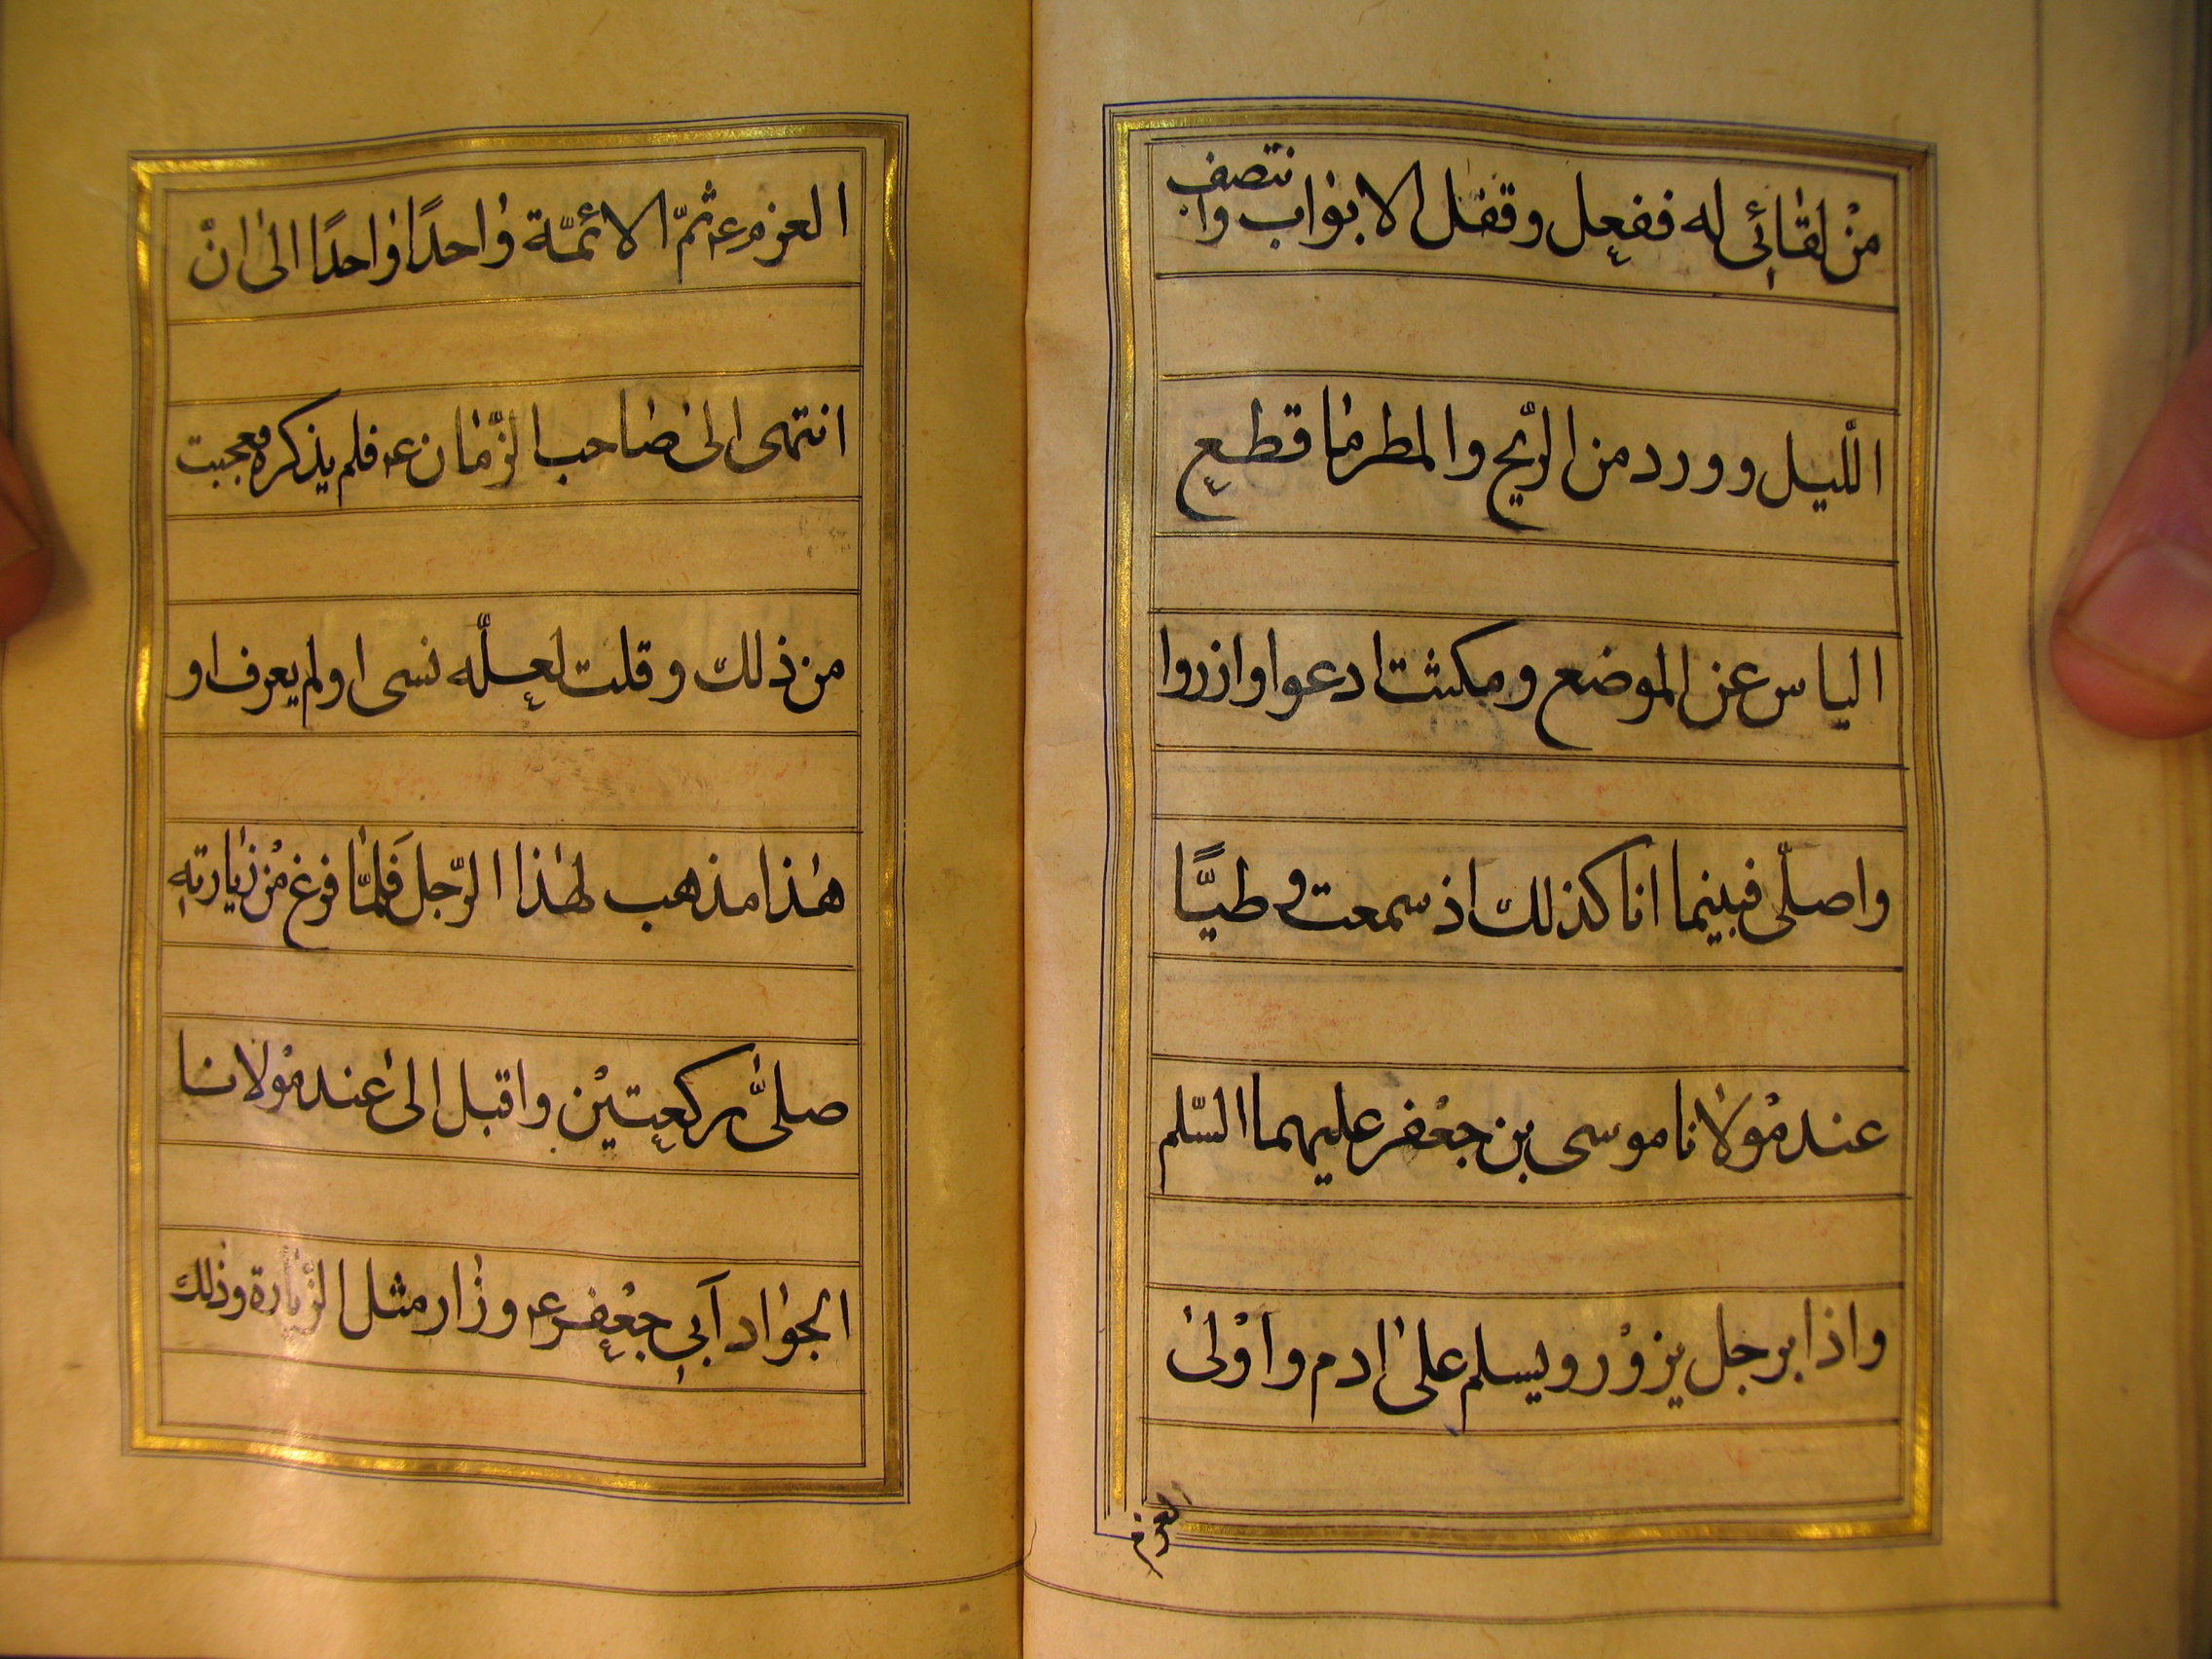 منْ لقائي له ففعل وقفل الابواب وانتصف
الليل وورد من الريح والمطر ما قطع
الياس عن الموضع ومكثت ادعوا وازروا
واصلّى فبينما انا كذلك اذ سمعت وطيًّا
عند موْلانا موسى بن جعْفر عليهما السّلم
واذا برجل يزوْر ويسلم على ادم واوْلى
العزم
العزم عه ثمّ الائمّة واحدًا واحدًا الى انْ
انتهى الى صاحب الزّمان عه فلم يذكره فعجبت
من ذلك وقلت لعلّه نسى او لم يعرف او
هذا مذهب لهذا الرّجل فَلمّا فرغ منْ زيارته
صلّى ركعتيْن واقبل الى عند موْلانا
الجواد اَبي جعْفر عه وزار مثل الزّيارة وذلك